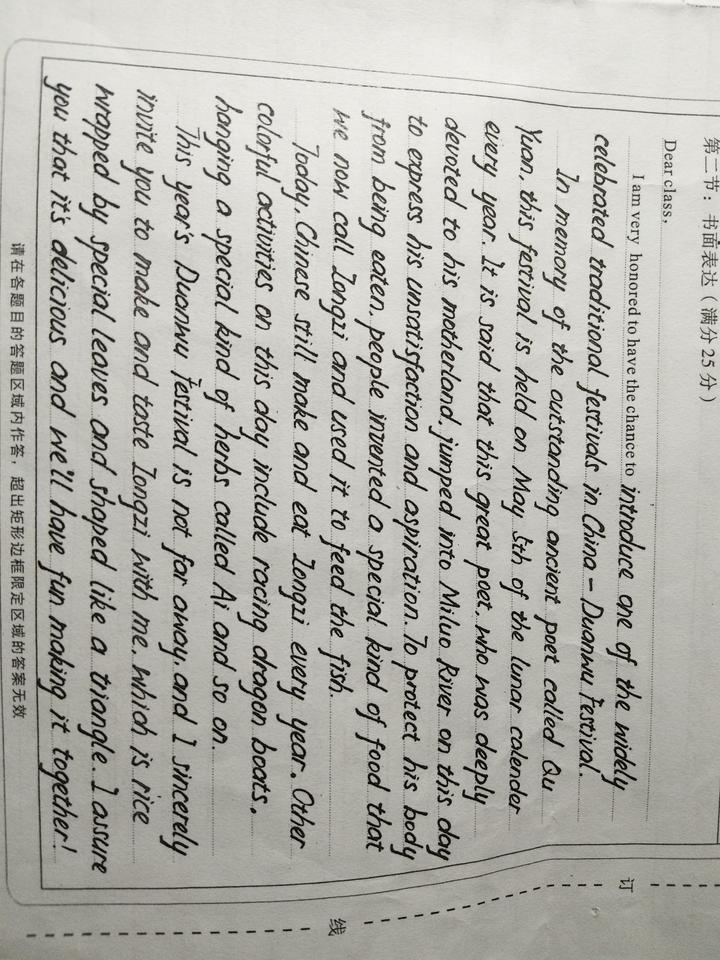 第二节：书面表达（满分25分）
Dear class,
I am very honored to have the chance to introduce one of the widely
celebrated traditional festivals in China - Duanwu Festival.
In memory of the outstanding ancient poet called Qu
Yuan, this festival is held on May 5th of the lunar calender
every year. It is said that this great poet, who was deeply
devoted to his motherland, jumped into Miluo River on this day
to express his unsatisfaction and aspiration. To protect his body
from being eaten, people invented a special kind of food that
we now call Zongzi and used it to feed the fish.
Today, Chinese still make and eat Zongzi every year. Other
colorful activities on this day include racing dragon boats,
hanging a special kind of herbs called Ai and so on.
This year's Duanwu Festival is not far away, and I sincerely
invite you to make and taste Zongzi with me, which is rice
wrapped by special leaves and shaped like a triangle. I assure
you that it's delicious and we'll have fun making it together!
请在各题目的答题区域内作答，超出矩形边框限定区域的答案无效
订
线